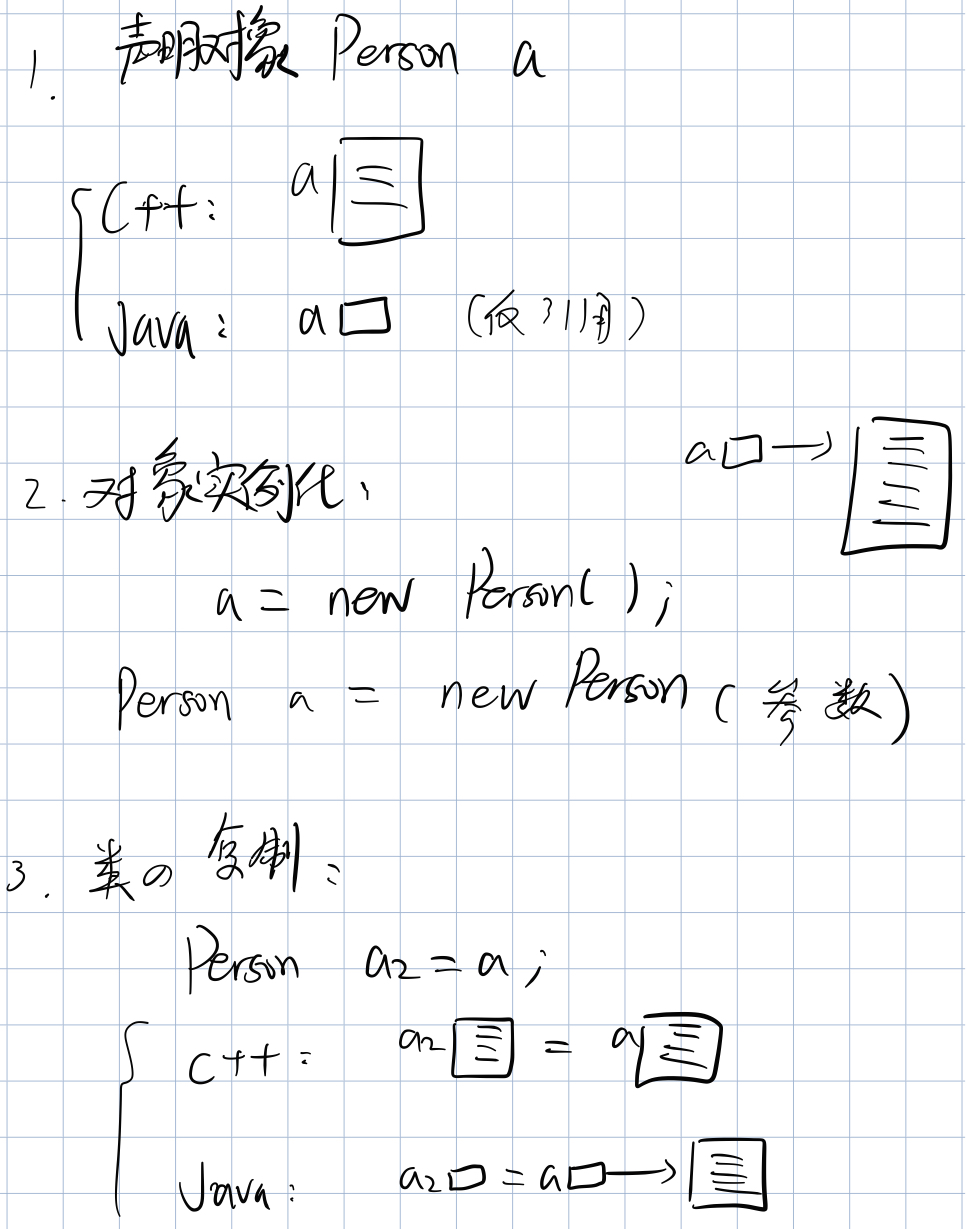 1. 声明对象 Person a
C++: a
Java: a (仅引用)
a
2. 对象实例化:
a = new Person();
Person a = new Person(参数)
3. 类の复制:
Person a2 = a;
C++: a2 = a
Java: a2 = a